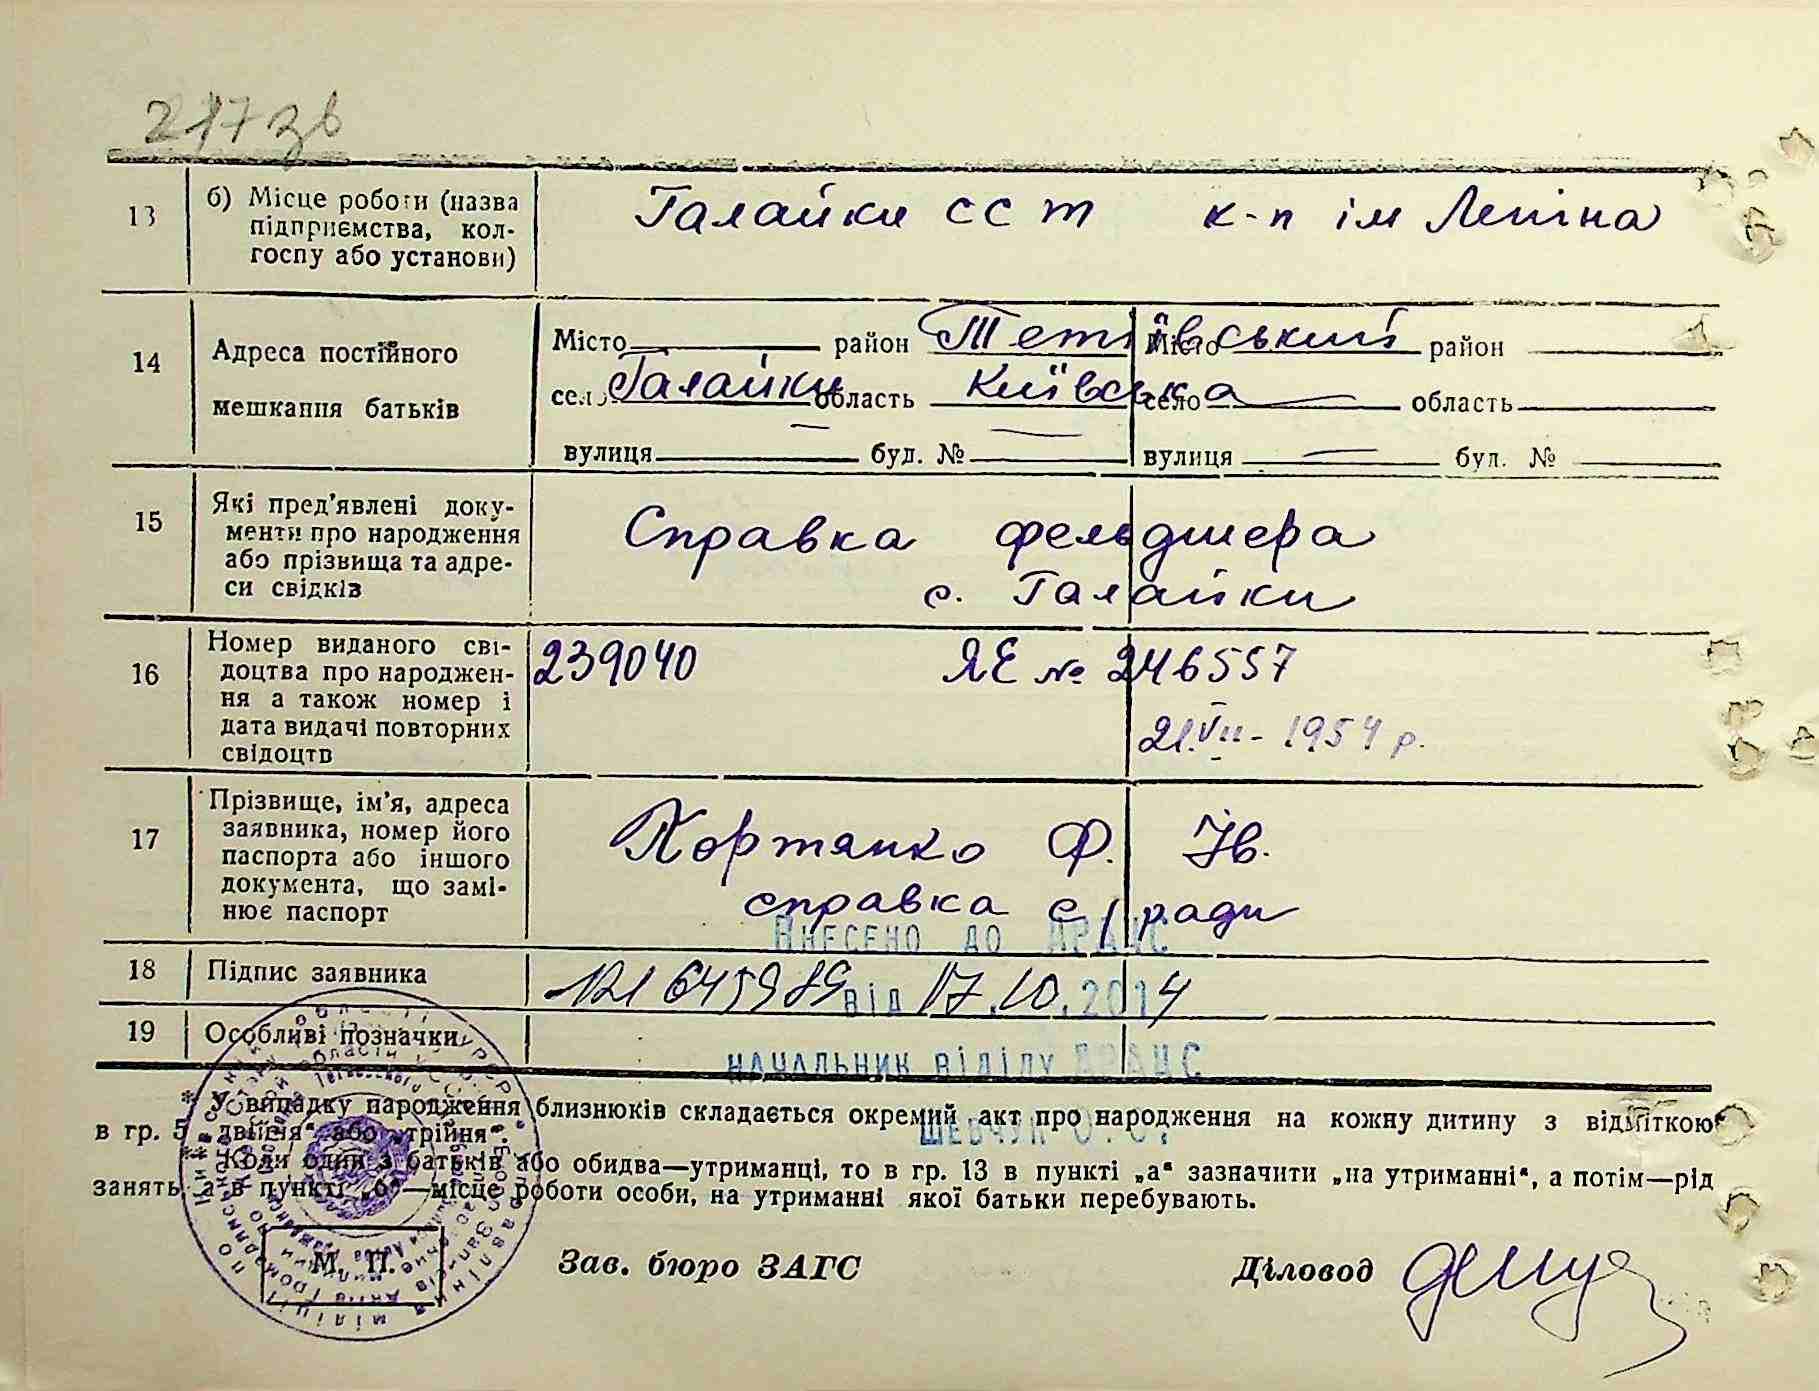 217 зв
13 б) Місце роботи (назва підприємства, колгоспу або установи) Галайки ССТ к-п ім Леніна
14 Адреса постійного мешкання батьків
Місто район Тетіївський Місто район
село Галайки область Київська село область
вулиця — буд. № — вулиця — буд. №
15 Які пред'явлені доку-
менти про народження
або прізвища та адре-
си свідків
Справка фельдшера
с. Галайки
16 Номер виданого сві-
доцтва про народжен-
ня а також номер і
дата видачі повторних
свідоцтв
239040 ЯЕ № 246557
21.VII - 1954 р.
17 Прізвище, ім'я, адреса
заявника, номер його
паспорта або іншого
документа, що замі-
нює паспорт
Кортянко Ф. Ів.
справка с/ради
ВНЕСЕНО ДО ДРАЦС
18 Підпис заявника
121645989 від 17.10.2014
19 Особливі позначки
НАЧАЛЬНИК ВІДІЛУ ДРАЦС
* У випадку народження близнюків складається окремий акт про народження на кожну дитину з відміткою
в гр. 5 „двійня“ або „трійня“.
ШЕВЧУК О.О.
** Коли один з батьків або обидва—утриманці, то в гр. 13 в пункті „а“ зазначити „на утриманні“, а потім—рід
занять, а в пункті „б“—місце роботи особи, на утриманні якої батьки перебувають.
М. П. Зав. бюро ЗАГС Діловод